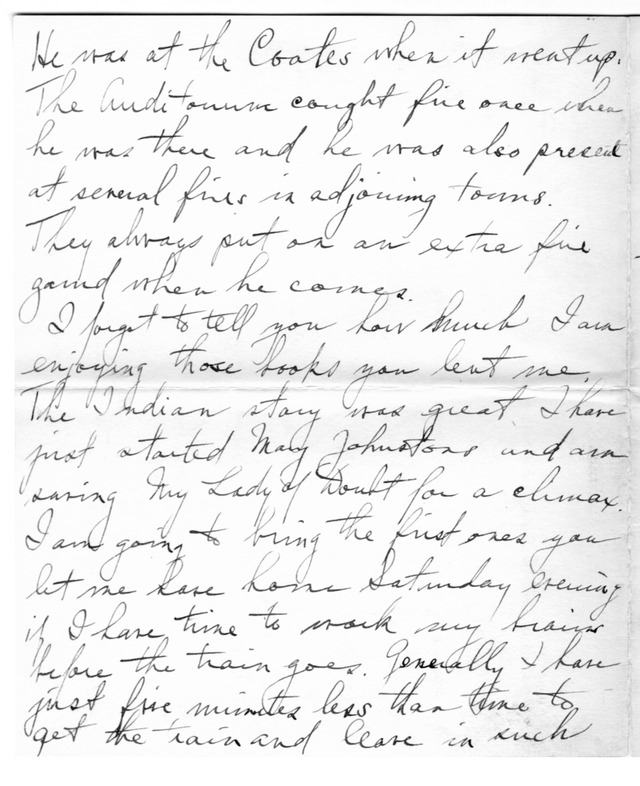 He was at the Coates when it went up.
The Auditorium caught fire once when
he was there and he was also present
at several fires in adjoining towns.
They always put on an extra fire
gaurd when he comes.
I forgot to tell you how much I am
enjoying those books you lent me.
The Indian story was great I have
just started Mary Johnstons and am
saving My Lady of Doubt for a climax.
I am going to bring the first ones you
let me have home Saturday evening
if I have time to work my brains
before the train goes. Generally I have
just five minutes less than time to
get the train and leave in such